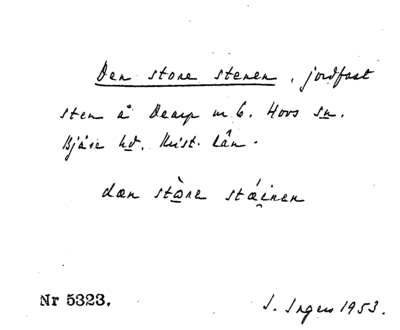 Den store stenen, jordfast
sten å Dearp nr 6. Hovs sn.
Bjäre hd. Krist. län.
dæn stòre stǽinen
Nr 5323.
I. Ingers 1953.